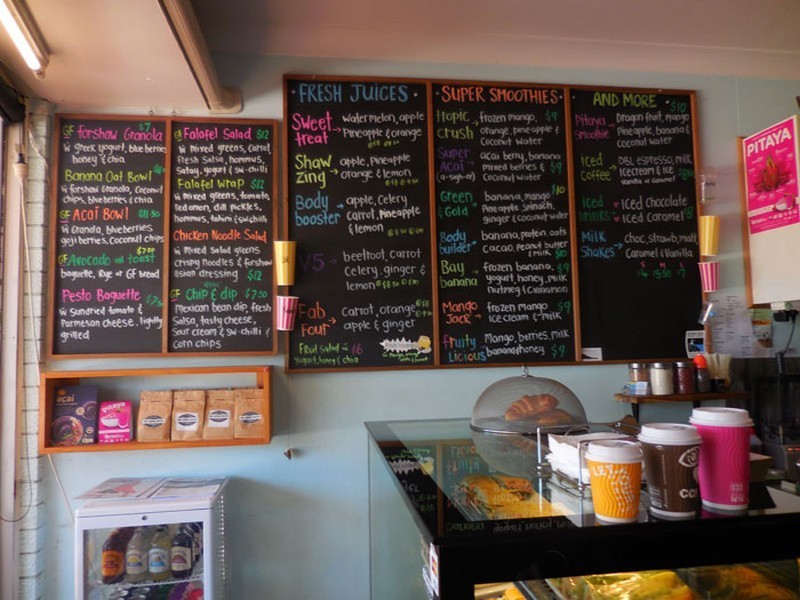 GF forshaw Granola $7
w greek yogurt, blue berries
honey & chia
Banana Oat Bowl
w forshaw granola, coconut
chips, blueberries & chia
GF Acai Bowl 11.50
w Granola, blueberries
goji berries, coconut chips
GF Avocado on toast
baguette, Rye or GF bread
Pesto Baguette
w sundried tomato &
Parmesan cheese, lightly
grilled
GF Falafel Salad $12
w mixed greens, carrot,
fresh Salsa, hommus,
Satay, yogurt & sw-chilli
Falafel wrap $12
w mixed greens, tomato,
red onion, dill pickles,
hommus, tahini & sw chilli
Chicken Noodle Salad
w mixed Salad greens
crispy noodles & forshaw
asian dressing $12
GF Chip & dip $7.50
Mexican bean dip, fresh
Salsa, tasty cheese,
sour cream & sw-chilli &
corn chips
FRESH JUICES
Sweet treat → watermelon, apple
Pineapple & orange
Shaw zing → apple, pineapple
orange & lemon
Body booster → apple, celery
carrot, pineapple
& lemon
V5 → beetroot, carrot
celery, ginger &
lemon
Fab four → carrot, orange
apple & ginger
Fruit salad w $6
yogurt, honey & chia
SUPER SMOOTHIES
Tropic crush → frozen mango, $9
orange, pineapple &
coconut water
Super Acai → acai berry, banana
mixed berries & $9
coconut water
Green & Gold → banana, mango $10
Pineapple, spinach,
ginger & coconut water
Body builder → banana, protein, oats
cacao, peanut butter
& milk $10
Bay banana → frozen banana, $9
yogurt, honey, milk
nutmeg & cinnamon
Mango Jack → frozen mango $9
icecream & milk
fruity Licious → Mango, berries, milk
banana & honey $9
AND MORE
Pitaya Smoothie → Dragon fruit, mango $10
Pineapple, banana &
coconut water
Iced Coffee → DBL espresso, milk
icecream & ice
Iced Drinks → Iced chocolate
Iced caramel
Milk Shakes → choc, strawb, malt
Caramel & Vanilla
PITAYA
acai
Pitaya